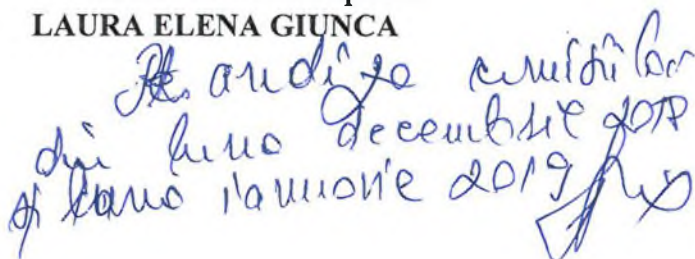 LAURA ELENA GIUNCA
Pt. ordinea comisiilor
din luna decembrie 2018
și luna ianuarie 2019